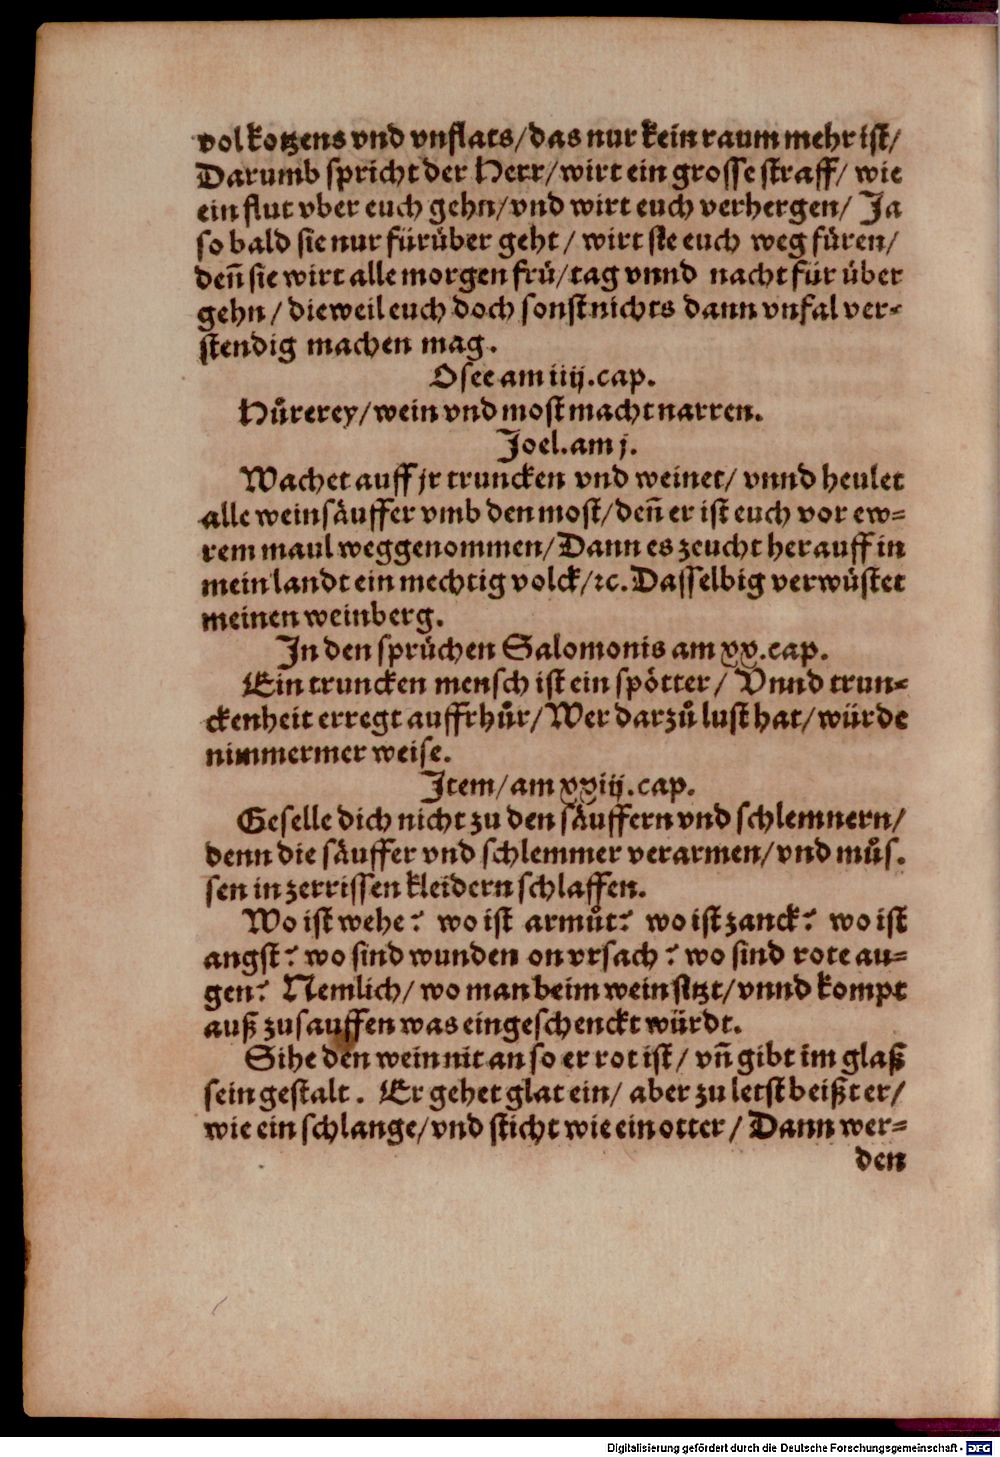 vol kotzens vnd vnflats/das nur kein raum mehr ist/
Darumb spricht der Herr/wirt ein grosse straff/ wie
ein flut vber euch gehn/vnd wirt euch verhergen/ Ja
so bald sie nur fürüber geht / wirt sie euch weg füren/
deñ sie wirt alle morgen frů/tag vnnd nacht für über
gehn / dieweil euch doch sonst nichts dann vnfal ver-
stendig machen mag.
Osee am iiij.cap.
Hůrerey/wein vnd most macht narren.
Joel.am j.
Wachet auff jr truncken vnd weinet/ vnnd heulet
alle weinsäuffer vmb den most/deñ er ist euch vor ew=
rem maul weggenommen/Dann es zeucht herauff in
mein landt ein mechtig volck/ꝛc.Dasselbig verwüstet
meinen weinberg.
In den sprüchen Salomonis am xx.cap.
Ein truncken mensch ist ein spötter/ Vnnd trun-
ckenheit erregt auffrhůr/Wer darzů lust hat/würde
nimmermer weise.
Item/am xxiij.cap.
Geselle dich nicht zu den säuffern vnd schlemnern/
denn die säuffer vnd schlemmer verarmen/vnd můs.
sen in zerrissen kleidern schlaffen.
Wo ist wehe? wo ist armůt? wo ist zanck? wo ist
angst? wo sind wunden on vrsach? wo sind rote au=
gen? Nemlich/ wo man beim wein sitzt/vnnd kompt
auß zusauffen was eingeschenckt würdt.
Sihe den wein nit an so er rot ist/ vñ gibt im glaß
sein gestalt. Er gehet glat ein/ aber zu letst beißt er/
wie ein schlange/vnd sticht wie ein otter / Dann wer=
den
Digitalisierung gefördert durch die Deutsche Forschungsgemeinschaft - DFG